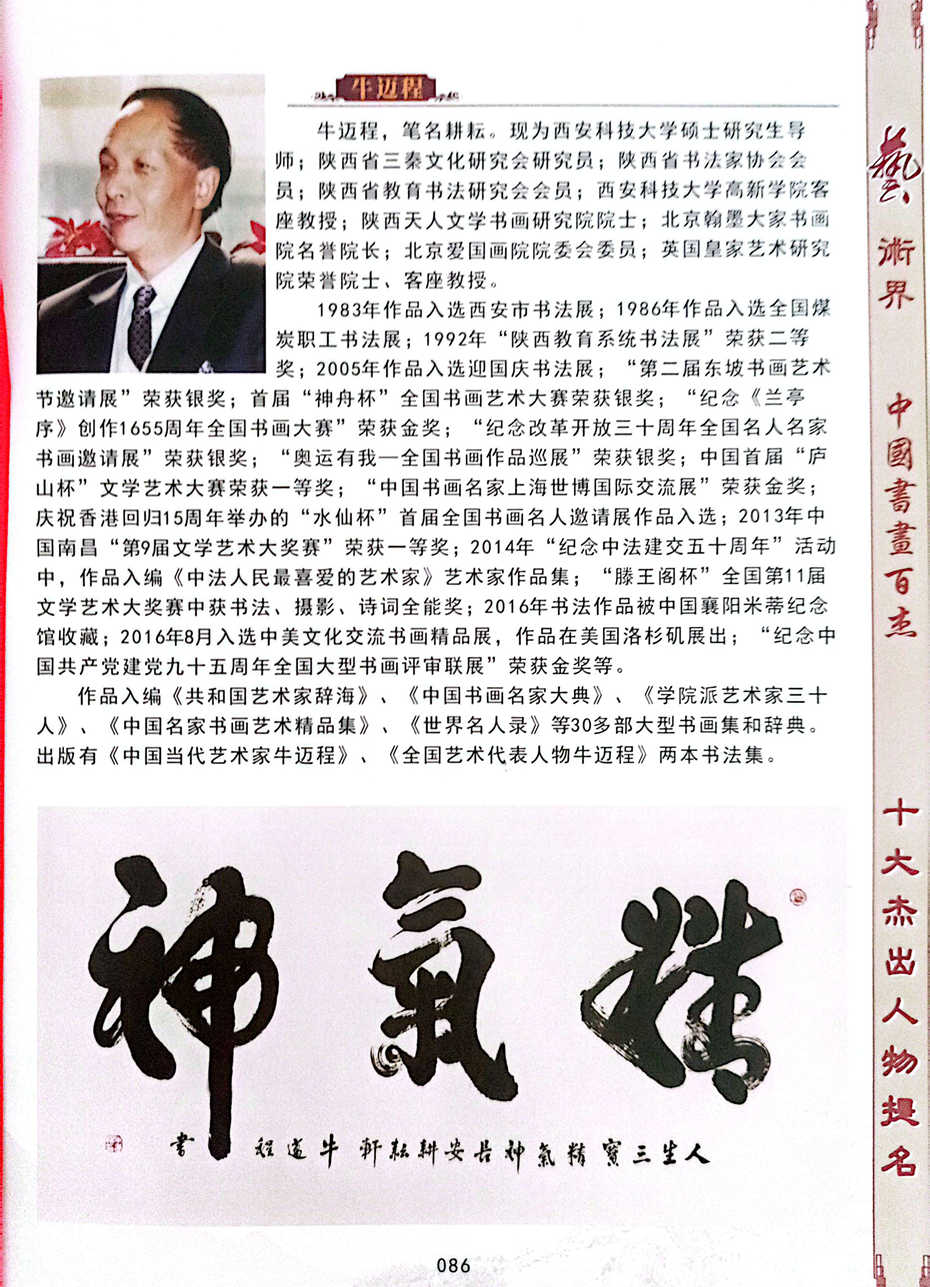 牛迈程
牛迈程，笔名耕耘。现为西安科技大学硕士研究生导
师；陕西省三秦文化研究会研究员；陕西省书法家协会会
员；陕西省教育书法研究会会员；西安科技大学高新学院客
座教授；陕西天人文学书画研究院院士；北京翰墨大家书画
院名誉院长；北京爱国画院院委会委员；英国皇家艺术研究
院荣誉院士、客座教授。
1983年作品入选西安市书法展；1986年作品入选全国煤
炭职工书法展；1992年“陕西教育系统书法展”荣获二等
奖；2005年作品入选迎国庆书法展；“第二届东坡书画艺术
节邀请展”荣获银奖；首届“神舟杯”全国书画艺术大赛荣获银奖；“纪念《兰亭
序》创作1655周年全国书画大赛”荣获金奖；“纪念改革开放三十周年全国名人名家
书画邀请展”荣获银奖；“奥运有我—全国书画作品巡展”荣获银奖；中国首届“庐
山杯”文学艺术大赛荣获一等奖；“中国书画名家上海世博国际交流展”荣获金奖；
庆祝香港回归15周年举办的“水仙杯”首届全国书画名人邀请展作品入选；2013年中
国南昌“第9届文学艺术大奖赛”荣获一等奖；2014年“纪念中法建交五十周年”活动
中，作品入编《中法人民最喜爱的艺术家》艺术家作品集；“滕王阁杯”全国第11届
文学艺术大奖赛中获书法、摄影、诗词全能奖；2016年书法作品被中国襄阳米蒂纪念
馆收藏；2016年8月入选中美文化交流书画精品展，作品在美国洛杉矶展出；“纪念中
国共产党建党九十五周年全国大型书画评审联展”荣获金奖等。
作品入编《共和国艺术家辞海》、《中国书画名家大典》、《学院派艺术家三十
人》、《中国名家书画艺术精品集》、《世界名人录》等30多部大型书画集和辞典。
出版有《中国当代艺术家牛迈程》、《全国艺术代表人物牛迈程》两本书法集。
精氣神
人生三寶精氣神長安耕耘軒牛邁程書
086
藝術界
中國書畫百杰
十大杰出人物提名